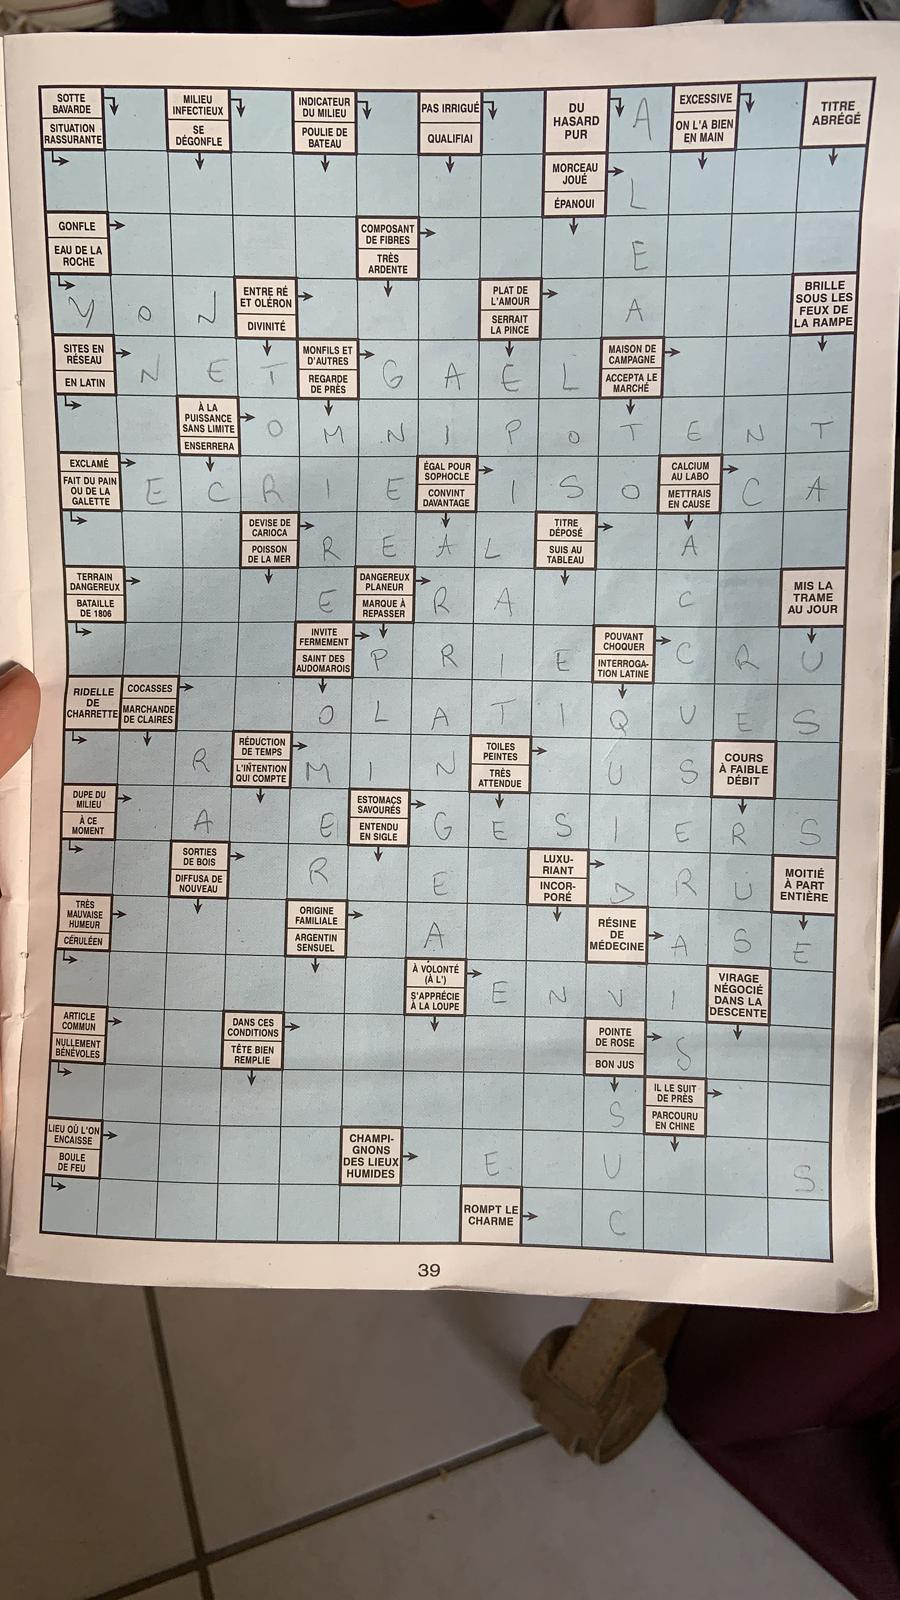 SOTTE BAVARDE
SITUATION RASSURANTE
MILIEU INFECTIEUX
SE DÉGONFLE
INDICATEUR DU MILIEU
POULIE DE BATEAU
PAS IRRIGUÉ
QUALIFIAI
DU HASARD PUR
A
EXCESSIVE
ON L'A BIEN EN MAIN
TITRE ABRÉGÉ
MORCEAU JOUÉ
ÉPANOUI
L
GONFLE
EAU DE LA ROCHE
COMPOSANT DE FIBRES
TRÈS ARDENTE
E
Y O N
ENTRE RÉ ET OLÉRON
DIVINITÉ
PLAT DE L'AMOUR
SERRAIT LA PINCE
A
BRILLE SOUS LES FEUX DE LA RAMPE
SITES EN RÉSEAU
EN LATIN
N E T
MONFILS ET D'AUTRES
REGARDE DE PRÈS
G A E L
MAISON DE CAMPAGNE
ACCEPTA LE MARCHÉ
À LA PUISSANCE SANS LIMITE
ENSERRERA
O M N I P O T E N T
EXCLAMÉ
FAIT DU PAIN OU DE LA GALETTE
E C R I E
ÉGAL POUR SOPHOCLE
CONVINT DAVANTAGE
I S O
CALCIUM AU LABO
METTRAIS EN CAUSE
C A
DEVISE DE CARIOCA
POISSON DE LA MER
R E A L
TITRE DÉPOSÉ
SUIS AU TABLEAU
A
TERRAIN DANGEREUX
BATAILLE DE 1806
E
DANGEREUX PLANEUR
MARQUE À REPASSER
R A
C
MIS LA TRAME AU JOUR
INVITE FERMEMENT
SAINT DES AUDOMAROIS
P R I E
POUVANT CHOQUER
INTERROGATION LATINE
C R U
RIDELLE DE CHARRETTE
COCASSES
MARCHANDE DE CLAIRES
O L A T I Q U E S
R
RÉDUCTION DE TEMPS
L'INTENTION QUI COMPTE
M I N
TOILES PEINTES
TRÈS ATTENDUE
U S
COURS À FAIBLE DÉBIT
DUPE DU MILIEU
À CE MOMENT
A
E
ESTOMACS SAVOURÉS
ENTENDU EN SIGLE
G E S I E R S
SORTIES DE BOIS
DIFFUSA DE NOUVEAU
R
E
LUXURIANT
INCORPORÉ
D R U
MOITIÉ À PART ENTIÈRE
TRÈS MAUVAISE HUMEUR
CÉRULÉEN
ORIGINE FAMILIALE
ARGENTIN SENSUEL
A
RÉSINE DE MÉDECINE
A S E
À VOLONTÉ (À L')
S'APPRÉCIE À LA LOUPE
E N V I
VIRAGE NÉGOCIÉ DANS LA DESCENTE
ARTICLE COMMUN
NULLEMENT BÉNÉVOLES
DANS CES CONDITIONS
TÊTE BIEN REMPLIE
POINTE DE ROSE
BON JUS
S
S
IL LE SUIT DE PRÈS
PARCOURU EN CHINE
LIEU OÙ L'ON ENCAISSE
BOULE DE FEU
CHAMPIGNONS DES LIEUX HUMIDES
E
U
S
ROMPT LE CHARME
C
39